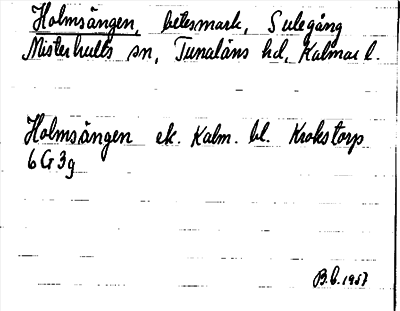 Holmsängen, betesmark, Sulegång
Misterhults sn, Tunaläns hd, Kalmar l.
Holmsängen ek. Kalm. bl. Krokstorp
6G3g
B.C. 1957